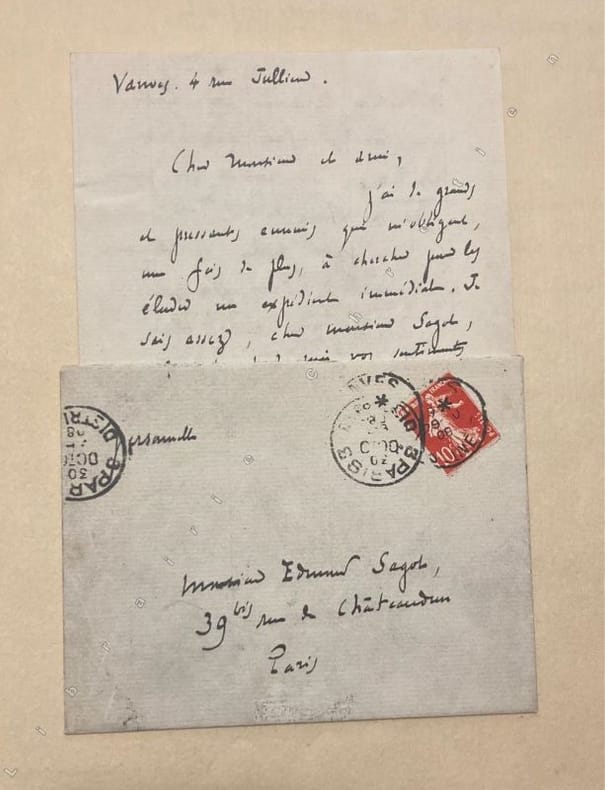 Vanves. 4 rue Jullien.
Cher Monsieur et ami,
j'ai de grands
et pressants ennuis qui m'obligent,
une fois de plus, à chercher pour les
éluder un expédient immédiat. Je
sais assez, cher monsieur Sagot,
vos sentiments
personnelle
Monsieur Edmond Sagot,
39 bis rue de Châteaudun
Paris
PARIS
30
OCT
DISTRI
10